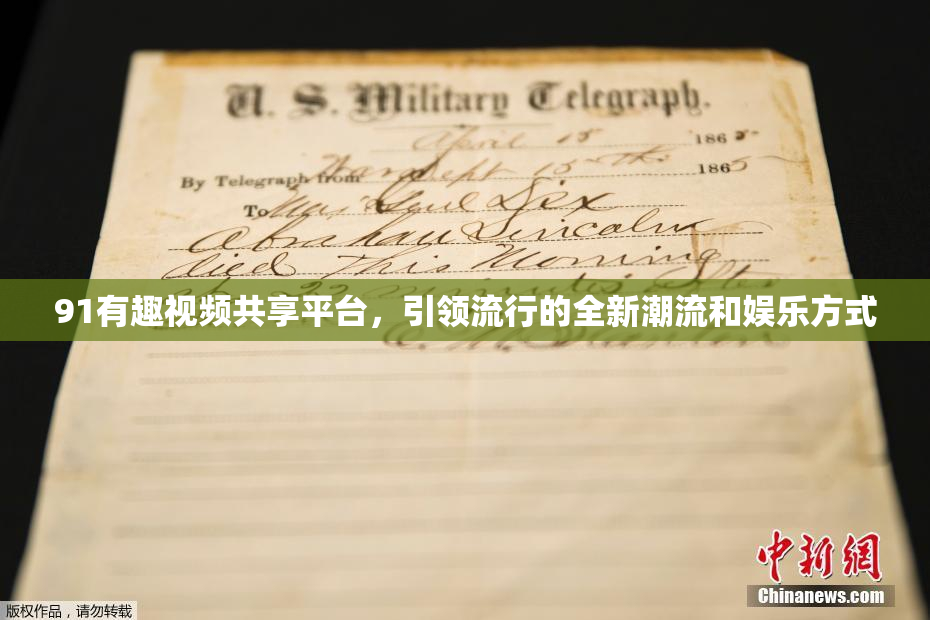 U. S. Military Telegraph.
April 15 1865
By Telegraph from War Dept 15th 1865
To Maj Genl Dix
Abraham Lincoln
died This Morning
at 22 minutes after
91有趣视频共享平台，引领流行的全新潮流和娱乐方式
E. M. Stanton
中新网
Chinanews.com
版权作品，请勿转载